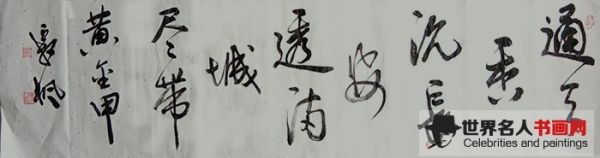 通天
香
沉長
安
透满
城
尽带
黄金甲
世界名人书画网
Celebrities and paintings